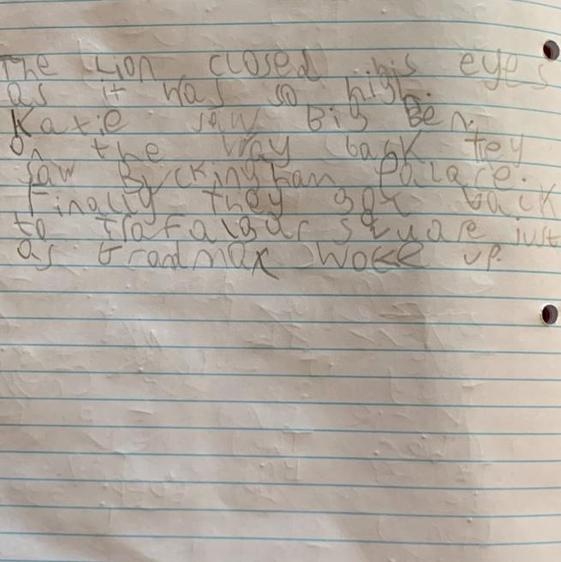 The Lion closed his eyes
as it was so high.
Katie saw Big Ben.
On the way back tey
saw Buckinghan palare.
Finally they got back
to trafalgar square just
as grandmax woke up.